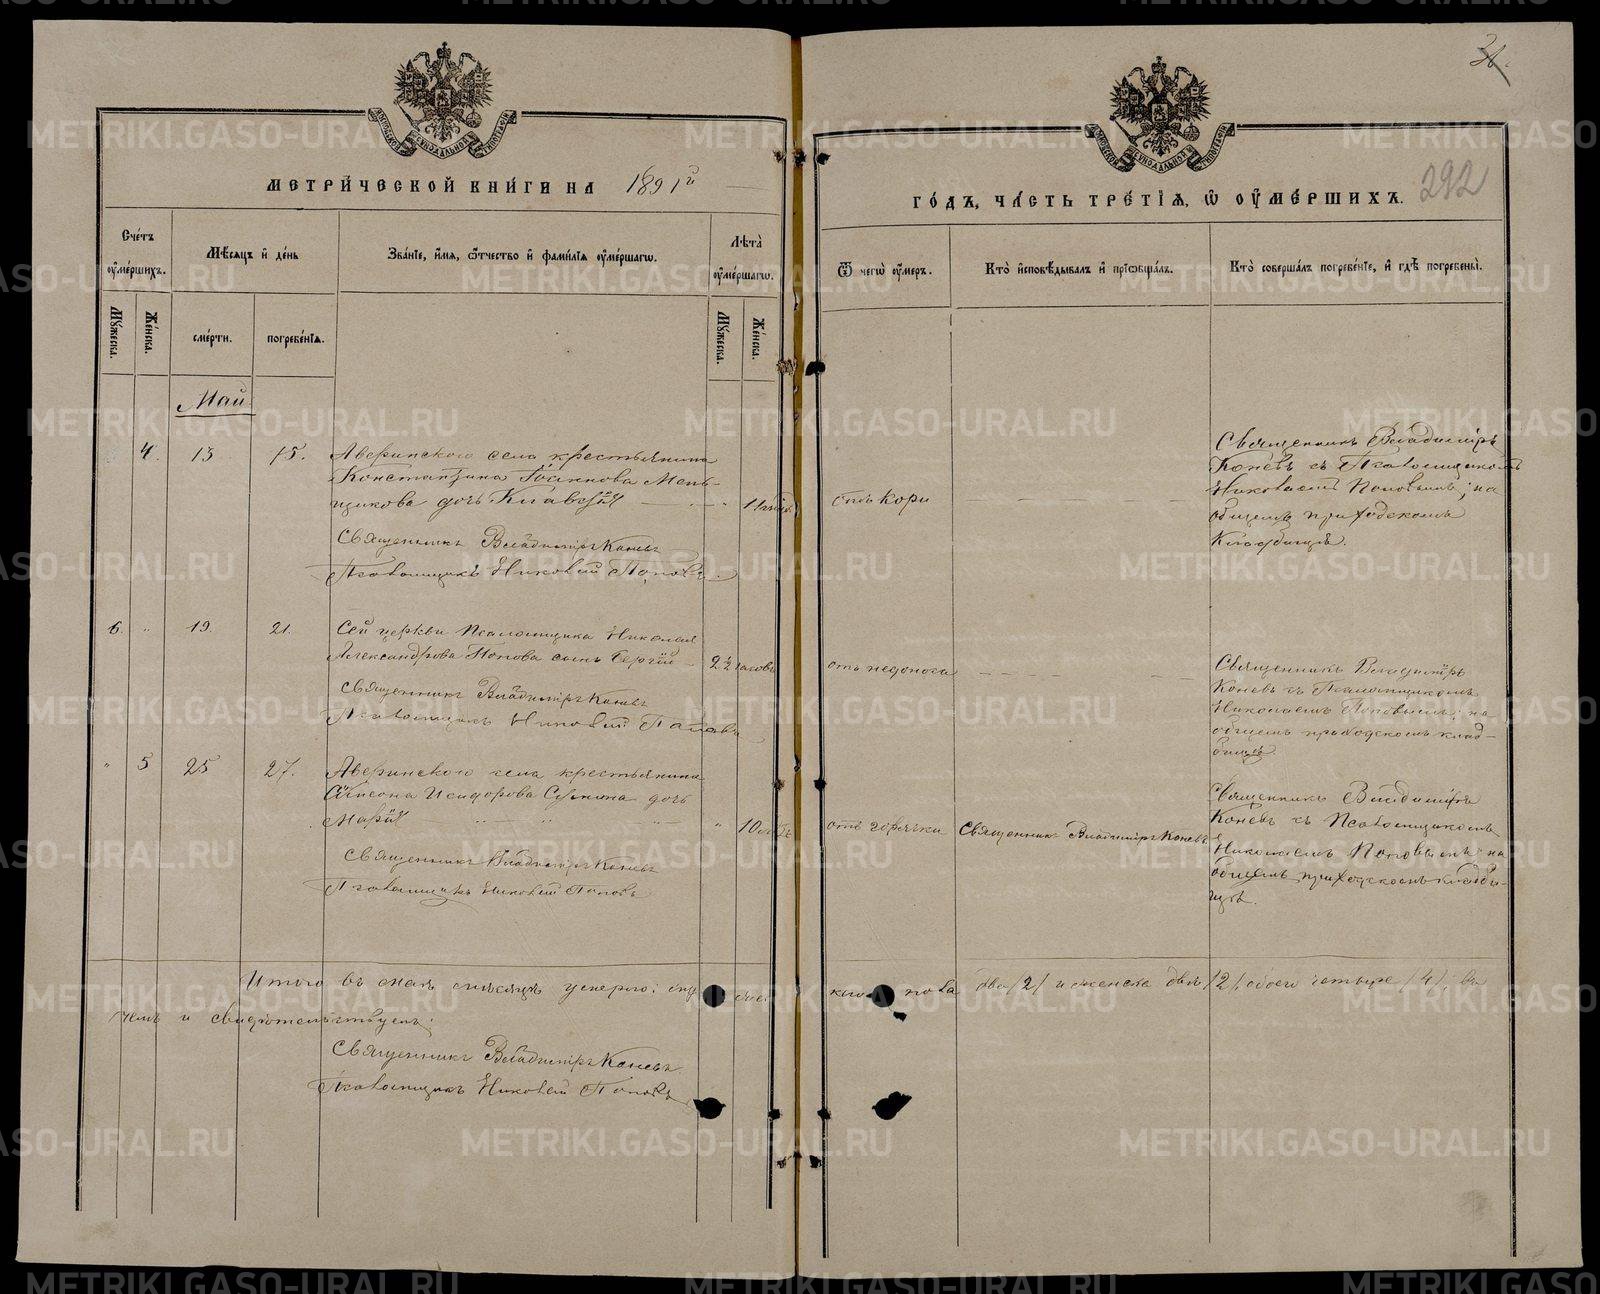 МЕТРИЧЕСКОЙ КНИГИ НА 1891й
ГОДЪ, ЧАСТЬ ТРЕТІЯ, Ѡ ОУМЕРШИХЪ.
292
Счетъ оумершихъ.
Мужеска.
Женска.
Мѣсяцъ и день
смерти.
погребенія.
Званіе, имя, ѡтчество и фамилія оумершагѡ.
Лѣта оумершагѡ.
Мужеска.
Женска.
Ѿ чегѡ оумеръ.
Кто исповѣдывалъ и пріѡбщалъ.
Кто совершалъ погребеніе, и гдѣ погребены.
Май
4. 13 15. Аверинскаго села крестьянина
Константина Іоаннова Мень-
щикова дочь Клавдія
11
отъ кори
Священникъ Владиміръ
Коневъ съ Псаломщикомъ
Николаемъ Поповымъ; на
общемъ приходскомъ
кладбищѣ.
Священникъ Владиміръ Коневъ
Псаломщикъ Николай Поповъ.
6. 19. 21. Сей церкви Псаломщика Николая
Александрова Попова сынъ Сергій
2½ часовъ
отъ недоноса
Священникъ Владиміръ
Коневъ съ Псаломщикомъ
Николаемъ Поповымъ; на
общемъ приходскомъ клад-
бищѣ
Священникъ Владиміръ Коневъ
Псаломщикъ Николай Поповъ
5 25 27. Аверинскаго села крестьянина
Симеона Исидорова дочь
Марія
10
отъ горячки
Священникъ Владиміръ Коневъ
Священникъ Владиміръ
Коневъ съ Псаломщикомъ
Николаемъ Поповымъ на
общемъ приходскомъ кладби-
щѣ.
Священникъ Владиміръ Коневъ
Псаломщикъ Николай Поповъ
Итого въ маѣ мѣсяцѣ умерло: пола два /2/ и женска двѣ /2/, обоего четыре /4/; въ
чемъ и свидѣтельствуемъ:
Священникъ Владиміръ Коневъ
Псаломщикъ Николай Поповъ
METRIKI.GASO-URAL.RU